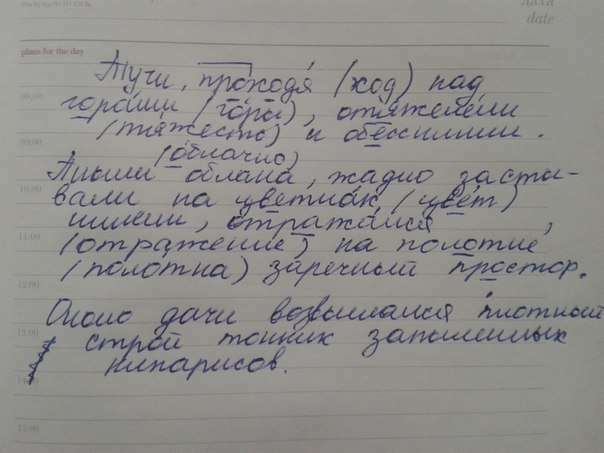 дата
date
plans for the day
Тучи, проходя (ход) над
горами (горы), отяжелели
(тяжесть) и обессилили.
(облачно)
облака, жадно засты-
вали на цветках (цвет)
отражался,
(отражение) на полотне
(полотна) заречный простор.
Около дачи возвышался плотный
строй тонких запыленных
кипарисов.
09:00
10:00
11:00
12:00
13:00
15:00